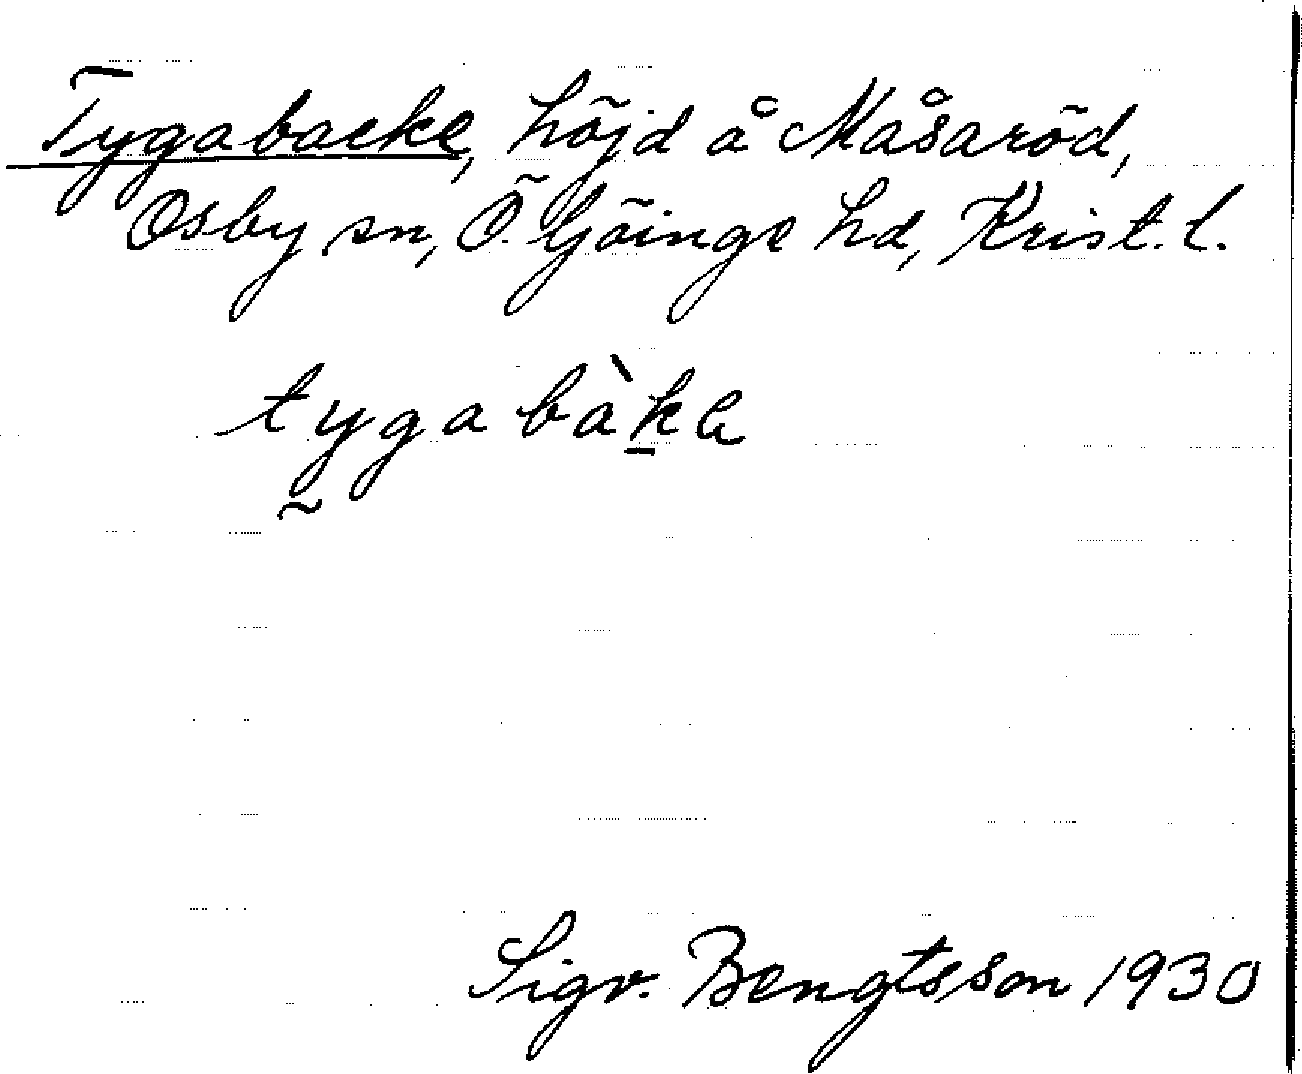 Tygabacke, höjd å Måsaröd,
Osby sn, Ö. Göinge hd, Krist. l.
tygabàka
Sigv. Bengtsson 1930